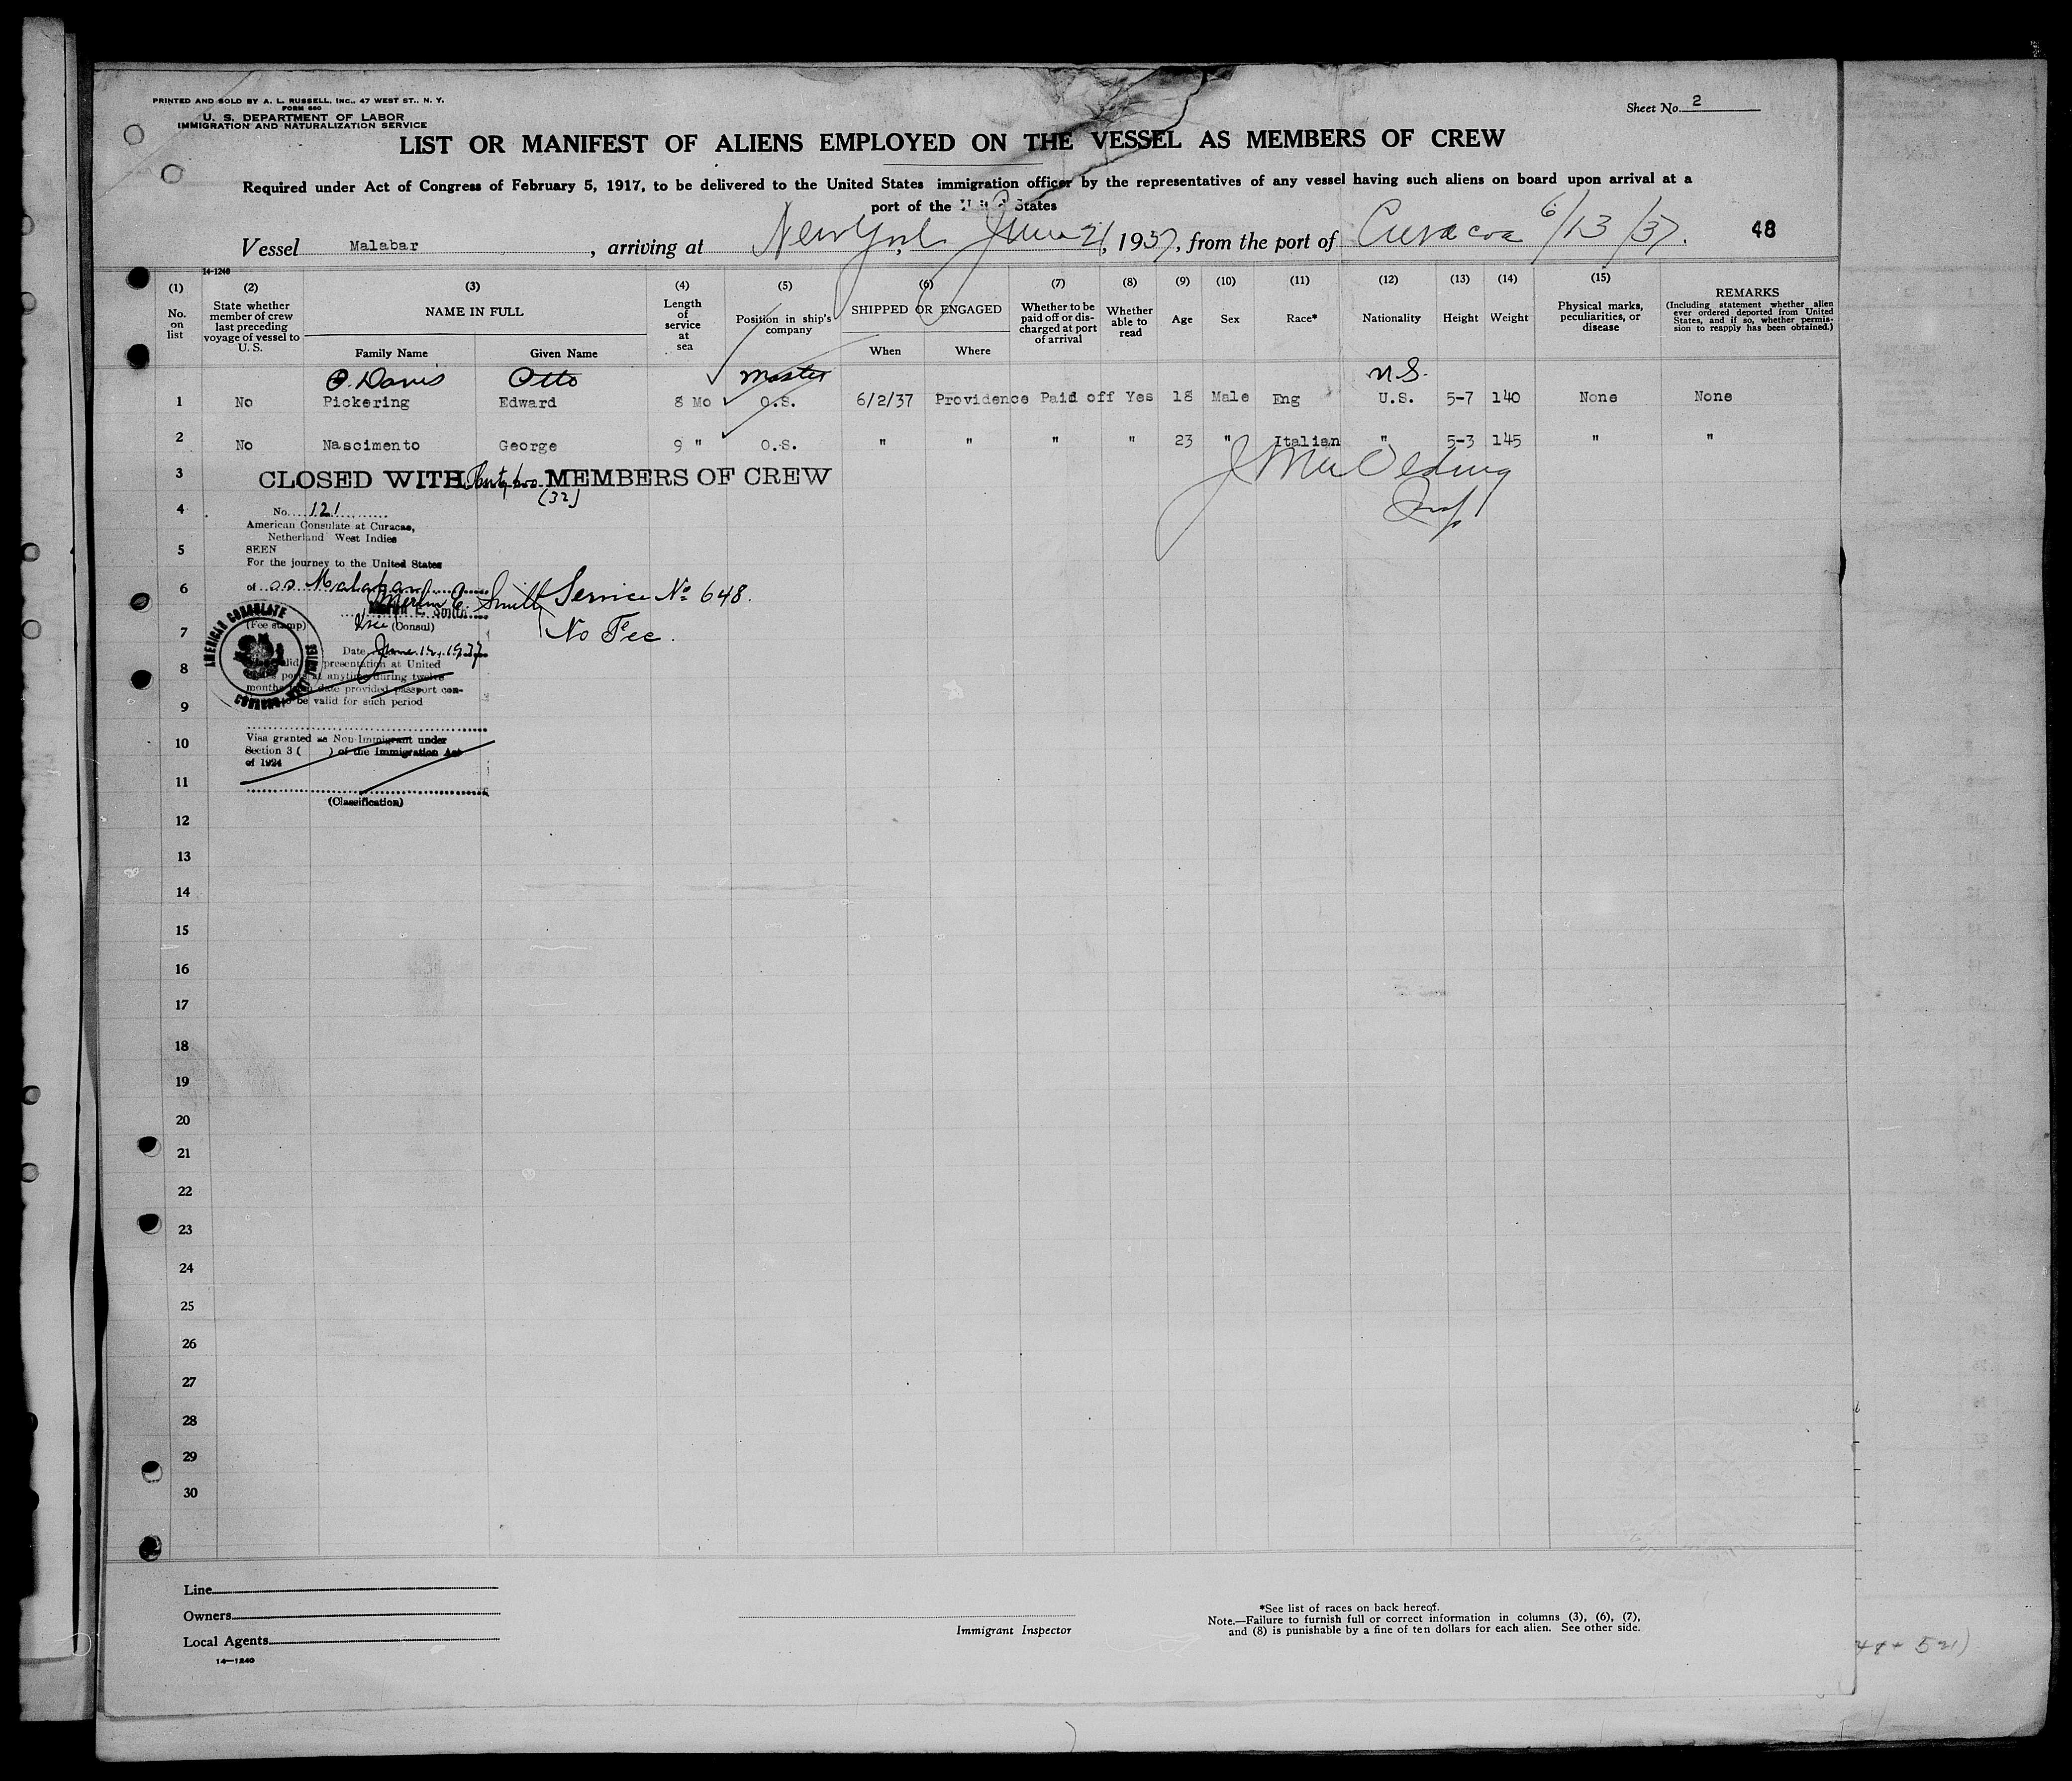 PRINTED AND SOLD BY A. L. RUSSELL, INC., 47 WEST ST., N. Y.
FORM 680
U. S. DEPARTMENT OF LABOR
IMMIGRATION AND NATURALIZATION SERVICE
Sheet No. 2
LIST OR MANIFEST OF ALIENS EMPLOYED ON THE VESSEL AS MEMBERS OF CREW
Required under Act of Congress of February 5, 1917, to be delivered to the United States immigration officer by the representatives of any vessel having such aliens on board upon arrival at a
port of the United States
Vessel Malabar, arriving at New York, June 21, 1937, from the port of Curacoa 6/13/37. 48
14-1240
(1) No. on list
(2) State whether member of crew last preceding voyage of vessel to U. S.
(3) NAME IN FULL Family Name Given Name
(4) Length of service at sea
(5) Position in ship's company
(6) SHIPPED OR ENGAGED When Where
(7) Whether to be paid off or discharged at port of arrival
(8) Whether able to read
(9) Age
(10) Sex
(11) Race*
(12) Nationality
(13) Height
(14) Weight
(15) Physical marks, peculiarities, or disease
REMARKS (Including statement whether alien ever ordered deported from United States, and if so, whether permission to reapply has been obtained.)
O. Davis Otto Master U.S.
1 No Pickering Edward 8 Mo O.S. 6/2/37 Providence Paid off Yes 18 Male Eng U.S. 5-7 140 None None
2 No Nascimento George 9 " O.S. " " " " 23 " Italian " 5-3 145 " "
3 CLOSED WITH Thirty two MEMBERS OF CREW
(32)
4 No. 121
American Consulate at Curacao,
Netherland West Indies
5 SEEN
For the journey to the United States
6 of ss Malabar
Merlin E. Smith Service No 648.
Merlin E. Smith
7 (Fee stamp) Vice (Consul) No Fee.
AMERICAN CONSULATE
Date June 12, 1937
8 presentation at United
ports at anytime during twelve
months date provided passport con-
9 be valid for such period
10 Visa granted as Non-Immigrant under
Section 3 ( ) of the Immigration Act
of 1924
11
(Classification)
12
13
14
15
16
17
18
19
20
21
22
23
24
25
26
27
28
29
30
Line
Owners
Local Agents
14-1240
Immigrant Inspector
*See list of races on back hereof.
Note.—Failure to furnish full or correct information in columns (3), (6), (7),
and (8) is punishable by a fine of ten dollars for each alien. See other side.